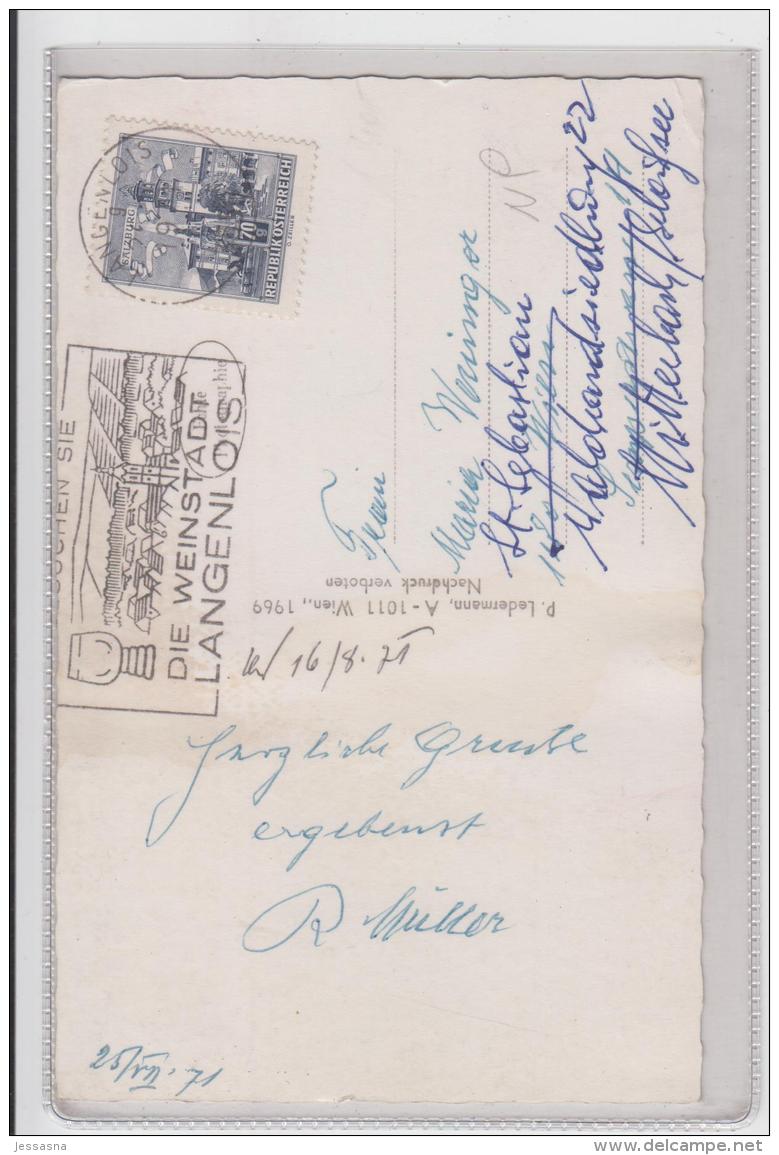 LANGENLOIS
9
SALZBURG
70g
REPUBLIK ÖSTERREICH
BESUCHEN SIE
DIE WEINSTADT
LANGENLOIS
Echte
Photographie
NP
Frau
Maria Weninger
St. Sebastian
Wien
Waldrandsiedlung 22
Mitterbach/Erlaufsee
P. Ledermann, A - 1011 Wien,, 1969
Nachdruck verboten
16/8. 71
Herzliche Grüsse
ergebenst
R Müller
25/VII. 71
jessasna
www.delcampe.net